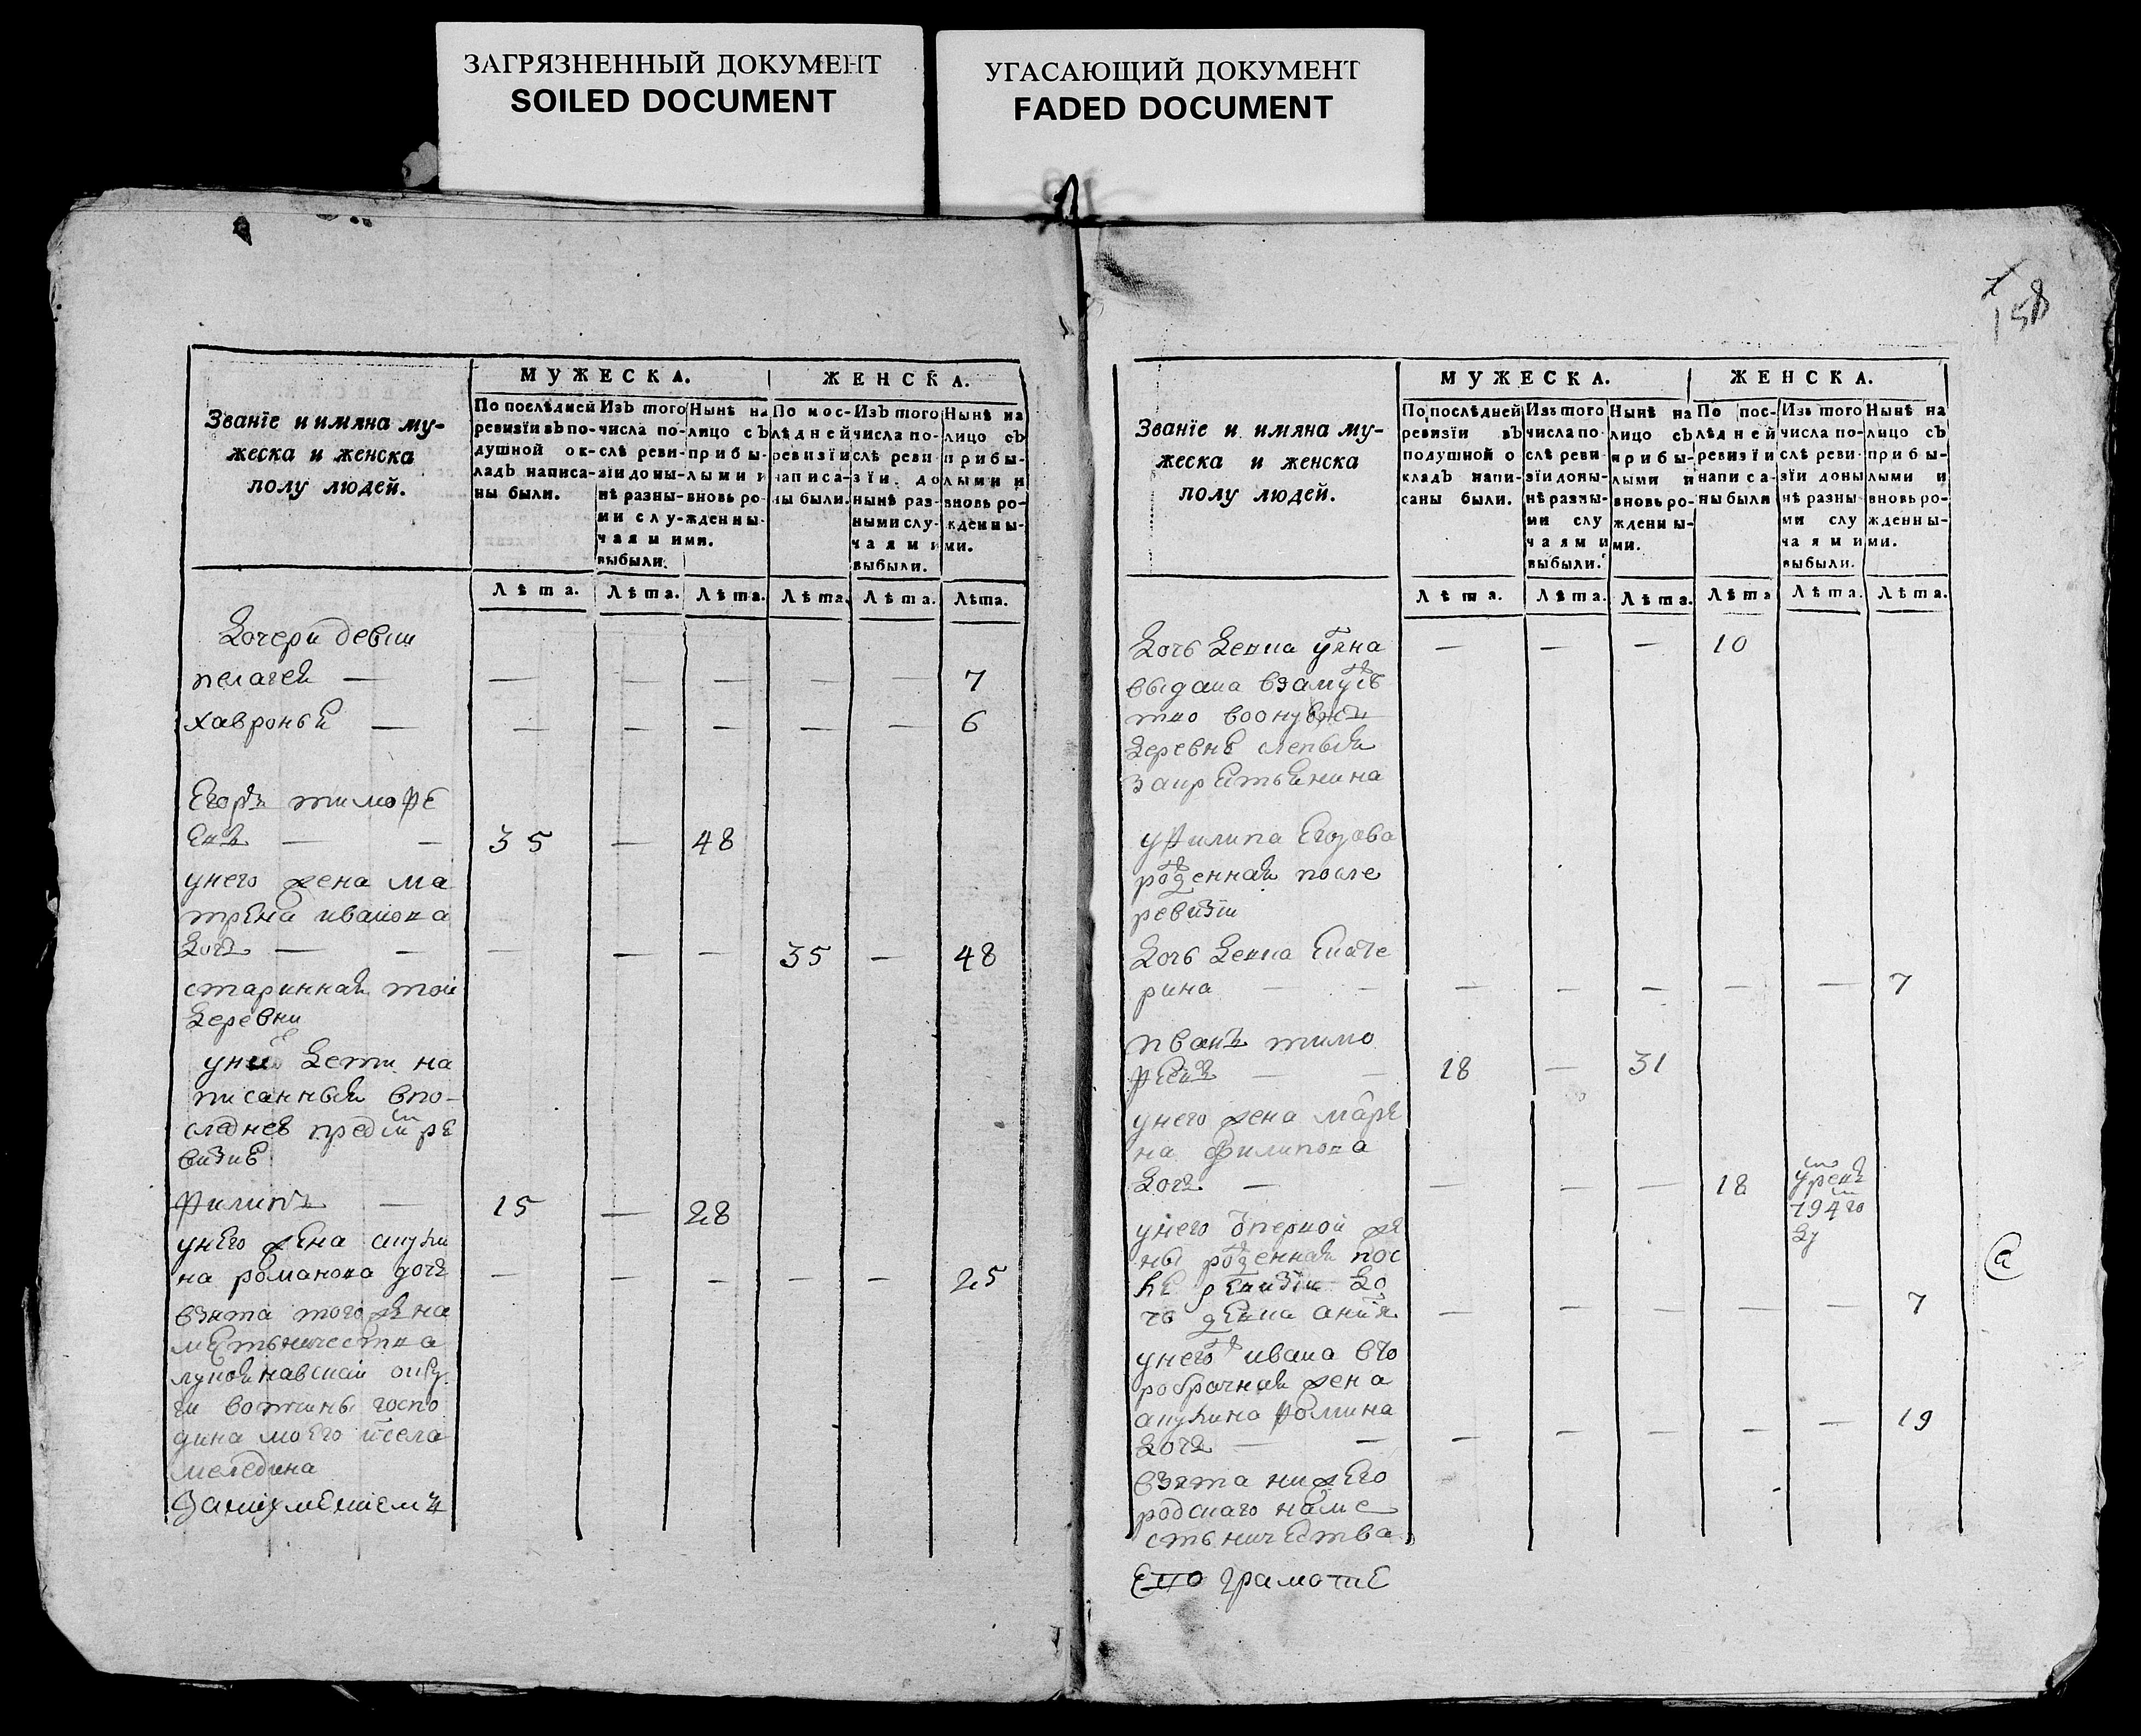 ЗАГРЯЗНЕННЫЙ ДОКУМЕНТ
SOILED DOCUMENT
УГАСАЮЩИЙ ДОКУМЕНТ
FADED DOCUMENT
МУЖЕСКА.
ЖЕНСКА.
Званїе и имяна му-
жеска и женска
полу людей.
По послѣдней
ревизїи въ по-
душной ок-
ладъ написа-
ны были.
Изъ того
числа по-
слѣ реви-
зїи доны-
нѣ разны-
ми слу-
чаями
выбыли.
Нынѣ на
лицо съ
прибы-
лыми и
вновь ро-
жденны-
ми.
По пос-
лѣдней
ревизїи
написа-
ны были.
Изъ того
числа по-
слѣ реви-
зїи до
нынѣ раз-
ными слу-
чаями
выбыли.
Нынѣ на
лицо съ
прибы-
лыми и
вновь ро-
жденны-
ми.
Лѣта. Лѣта. Лѣта. Лѣта. Лѣта. Лѣта.
дочери девки
пелагея — — — — — — 7
хавронья — — — — — — 6
Егоръ тимофе
евъ — — 35 — 48
унего жена ма
трена иванова
дочь — — — — — 35 — 48
старинная тои
деревни
дети на
писанныя впо-
следнеѣ пред ре
визиѣ
филипъ — 15 — 28
унего жена акули
на романова дочь — — — — — 25
взята того же на
местьничества
лукояновскай окру
ги вотчины госпо
дина моего села
меледина
Званїе и имяна му-
жеска и женска
полу людей.
МУЖЕСКА.
ЖЕНСКА.
По послѣдней
ревизїи въ
подушной о
кладъ напи-
саны были.
Изъ того
числа по-
слѣ реви-
зїи доны-
нѣ разны-
ми слу
чаями
выбыли.
Нынѣ на
лицо съ
прибы-
лыми и
вновь ро-
жденны-
ми.
По пос-
лѣдней
ревизїи
написа-
ны были
Изъ того
числа по-
слѣ реви-
зїи доны
нѣ разны-
ми слу
чаями
выбыли.
Нынѣ на
лицо съ
прибы-
лыми и
вновь ро-
жденны-
ми.
Лѣта. Лѣта. Лѣта. Лѣта Лѣта. Лѣта.
дочь девка — — — 10
выдана взамуже
тво
деревне
за крестьянина
уфилипа Егорова
рожденная после
ревизїи
дочь девка Екате
рина — — — — — — — 7
иванъ тимо
феевъ — — 18 — 31
унего жена маре
на филипова
дочь — — — — 18
1794 го
унего отпервой же
ны рожденная пос
ле ревизїи до
чь девка — — — — — 7
унего ивана вто
робрачная жена
акулина фомина
дочь — — — — — — — 19
взята нижего
родскаго наме
стьничества